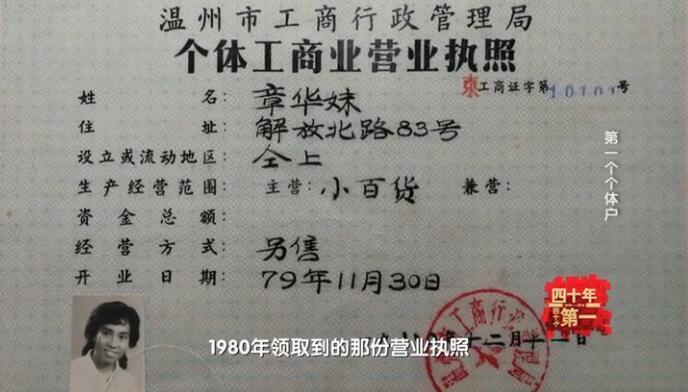 温州市工商行政管理局
个体工商业营业执照
东工商证字第10101号
姓名：章华妹
住址：解放北路83号
设立或流动地区：仝上
生产经营范围：主营：小百货 兼营：
资金总额：
经营方式：另售
开业日期：79年11月30日
十二月十一日
第一个个体户
四十年
第一
1980年领取到的那份营业执照